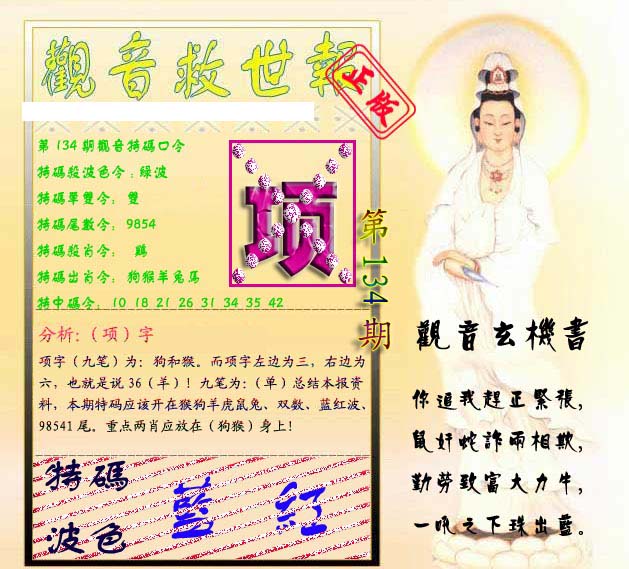 觀音救世報
正版
第134期觀音特碼口令
特碼殺波色令:綠波
特碼單雙令: 雙
特碼尾數令: 9854
特碼殺肖令: 鷄
特碼出肖令: 狗猴羊兔馬
特中碼令: 10 18 21 26 31 34 35 42
项
第134期
分析:(项)字
项字(九笔)为: 狗和猴。而项字左边为三,右边为
六,也就是说36(羊)! 九笔为:(单)总结本报资
料,本期特码应该开在猴狗羊虎鼠兔、双数、蓝红波、
98541尾。重点两肖应放在(狗猴)身上!
特碼
波色
藍 紅
觀音玄機書
你追我趕正緊張,
鼠奸蛇詐兩相欺,
勤勞致富大力牛,
一吼之下珠出藍。